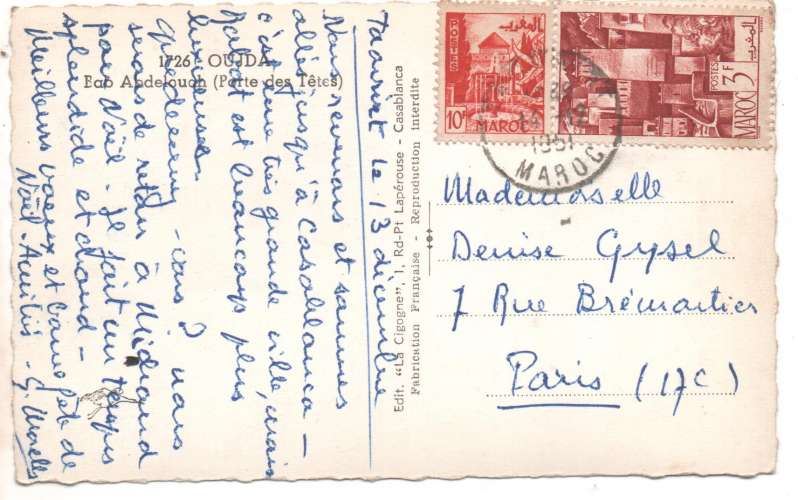 1726 OUJDA
Bab Abdelouah (Porte des Têtes)
Taourirt le 13 décembre
Nous revenons et sommes
allés jusqu'à Casablanca -
c'est une très grande ville, mais
Rabat est beaucoup plus
luxueuse.
nous
serons de retour à
pour Noël - Il fait un temps
splendide et chaud -
Meilleurs voeux et bonne fête de
Noël - Amitiés -
Edit. "La Cigogne", 1, Rd-Pt Lapérouse - Casablanca
Fabrication Française - Reproduction interdite
10F MAROC
POSTES
MAROC 3F
1951
MAROC
Mademoiselle
Denise Gysel
7 Rue Brémontier
Paris (17e)